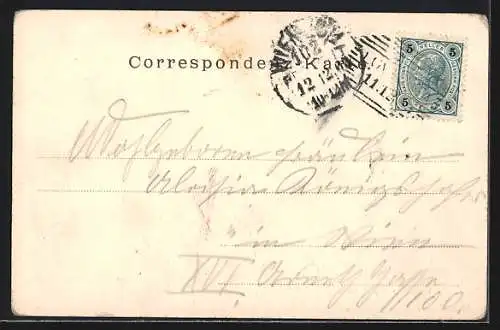 5 HELLER 5
5 5
Correspondenz-Karte
WIEN
12 12
11.12
Wohlgeboren Fräulein
Aloisia Königshofer
in Wien
XVI
1100.